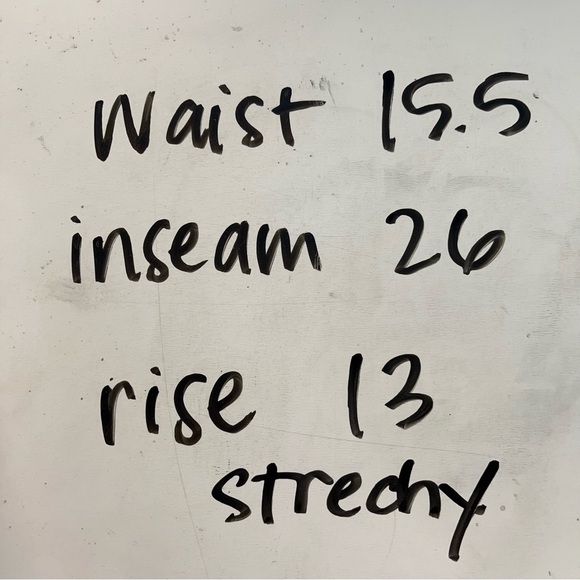 Waist 15.5
inseam 26
rise 13
strechy